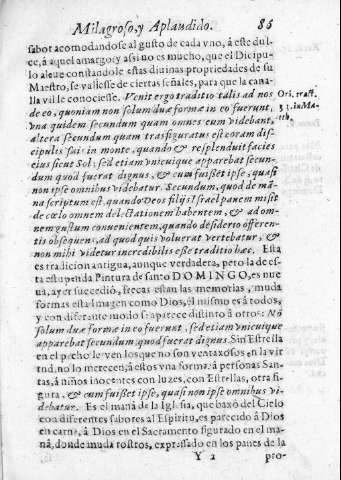 Milagroso, y Aplaudido. 86
sabor acomodandose al gusto de cada vno, à este dul-
ce, à aquel amargo; y assi no es mucho, que el Dicipu-
lo aleue constandole estas diuinas propriedades de su
Maestro, se valiesse de ciertas señales, para que la cana-
lla vil le conociesse. Venit ergo traditio talis ad nos
Ori. tract.
de eo, quoniam non solum duæ formæ in eo fuerunt,
35. in Ma-
vna quidem secundum quam omnes eum videbant,
tth.
altera secundum quam trasfiguratus est coram dis-
cipulis suis in monte, quando & resplenduit facies
eius sicut Sol: sed etiam vnicuique apparebat secun-
dum quod fuerat dignus, & cum fuisset ipse, quasi
non ipse omnibus videbatur. Secundum, quod de mã-
na scriptum est, quando Deos filijs Israel panem misit
de cœlo omnem delectationem habentem, & ad om-
nem gustum conuenientem, quando desiderio offeren-
tis obsequens, ad quod quis voluerat vertebatur, &
non mihi videtur incredibilis esse traditio hæc. Esta
es tradicion antigua, aunque verdadera, pero la de es-
ta estupenda Pintura de santo DOMINGO, es nue
ua, ayer sucediò, frescas estan las memorias, muda
formas esta Imagen como Dios, èl mismo es à todos,
y con diferante modo se aparece distinto à otros: Nõ
solum duæ formæ in eo fuerunt, sed etiam vnicuique
apparebat secundum quod fuerat dignus. Sin Estrella
en el pecho le ven los que no son ventaxosos en la vir
tud, no lo merecen, à estos vna forma: à personas San-
tas, à niños inocentes con luzes, con Estrellas, otra fi-
gura. & cum fuisset ipse, quasi non ipse omnibus vi-
debatur. Es el manà de la Iglesia, que baxò del Cielo
con diferentes sabores al Espiritu, es parecido à Dios
en carne, à Dios en el Sacramento figurado en el ma-
nà, donde muda rostros, expressado en los panes de la
Y 2 pro-